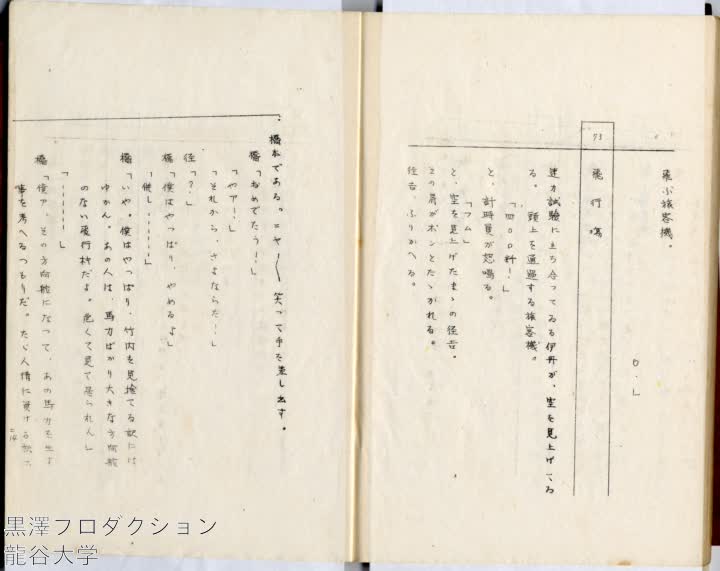 飛ぶ旅客機。
０．」
73
飛行場
速力試験に立ち合つてゐる伊丹が、空を見上げてゐ
る。頭上を通過する旅客機。
「四〇〇粁！」
と、計時員が怒鳴る。
「フム」
と、空を見上げたまゝの径吉。
その肩がポンとたゝかれる。
径吉、ふりかへる。
橋本である。ニヤーッ笑つて手を差し出す。
橋「おめでたう！」
「やアー」
「それから、さよならだ！」
径「？」
橋「僕はやつぱり、やめるよ」
「併し‥‥‥」
橋「いや。僕はやつぱり、竹内を見捨てる訳には
ゆかん。あの人は、馬力ばかり大きな方向舵
のない飛行機だよ。危くて見て居られん」
「‥‥‥‥」
橋「僕ア、その方向舵になつて、あの馬力を生かす
事を考へるつもりだ。たゞ人情に負ける訳
黒澤プロダクション
龍谷大学